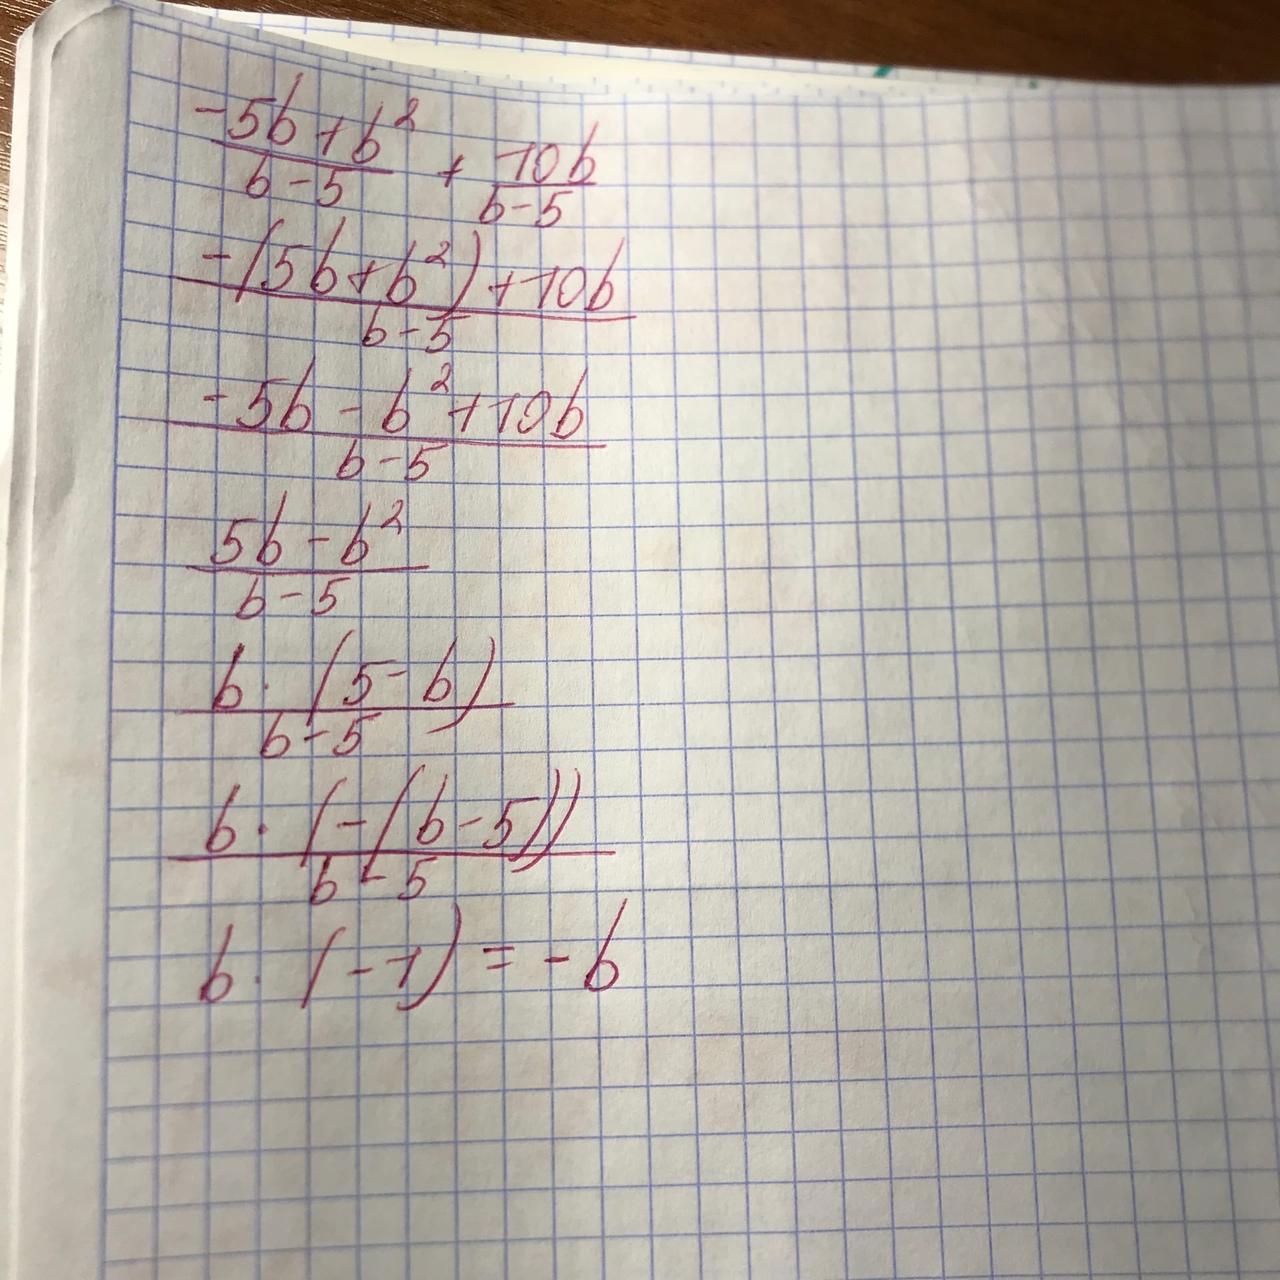 (-5b+b²)/(b-5) + 10b/(b-5)
(-(5b+b²)+10b)/(b-5)
(-5b-b²+10b)/(b-5)
(5b-b²)/(b-5)
(b·(5-b))/(b-5)
(b·(-(b-5)))/(b-5)
b·(-1)=-b